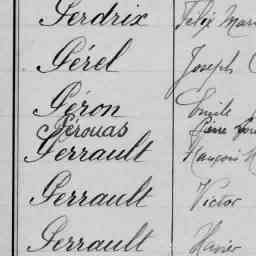 Perdrix Félix Mari
Pérel Joseph
Péron Emile
Pérouas Pierre
Perrault François
Perrault Victor
Perrault Xavier